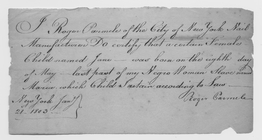 I Roger Parmele of the City of New York Nail
Manufacturer Do certify that a certain Female
Child named Jane — was born on the eighth day
of May last past of my Negro Woman Slave named
Maria which Child I retain according to Law
New York Jany
21. 1803
Roger Parmele